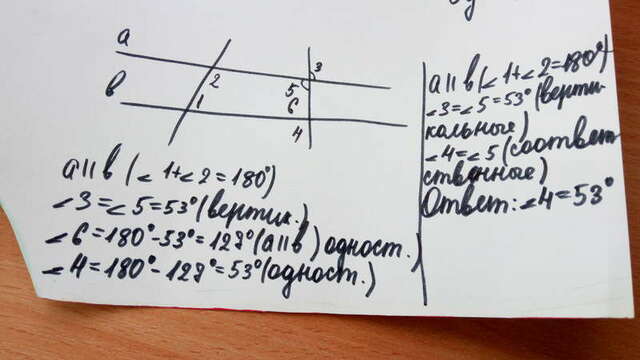 a
3
2
5
в
1
6
4
a || b (∠1+∠2=180°)
∠3=∠5=53° (вертик.)
∠6=180°-53°=127° (a||b) одност.)
∠4=180°-127°=53° (одност.)
a || b (∠1+∠2=180°)
∠3=∠5=53° (верти
кальные)
∠4=∠5 (соответ
ственные)
Ответ: ∠4=53°